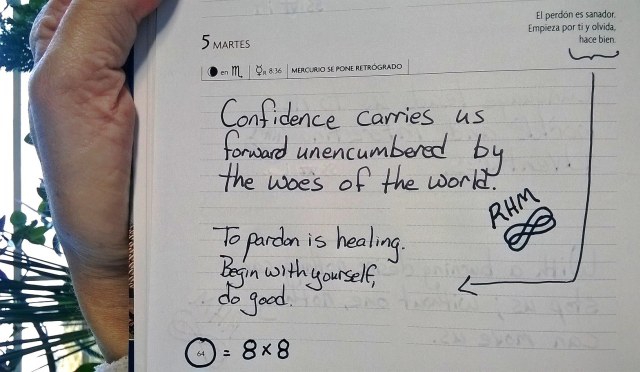 El perdón es sanador.
Empieza por ti y olvida,
hace bien.
5 MARTES
en ♏ ☿℞ 8:36 MERCURIO SE PONE RETRÓGRADO
Confidence carries us
forward unencumbered by
the woes of the world.
RHM
To pardon is healing.
Begin with yourself,
do good.
64 = 8 × 8